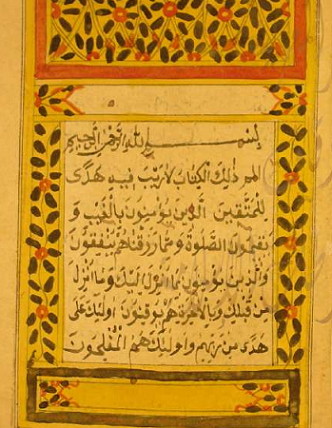 بسم الله الرحمن الرحيم
الم ذلك الكتاب لا ريب فيه هدى
للمتقين الذين يؤمنون بالغيب و
يقيمون الصلوة ومما رزقناهم ينفقون
والذين يؤمنون بما انزل اليك وما انزل
من قبلك وبالآخرة هم يوقنون اولئك على
هدى من ربهم واولئك هم المفلحون